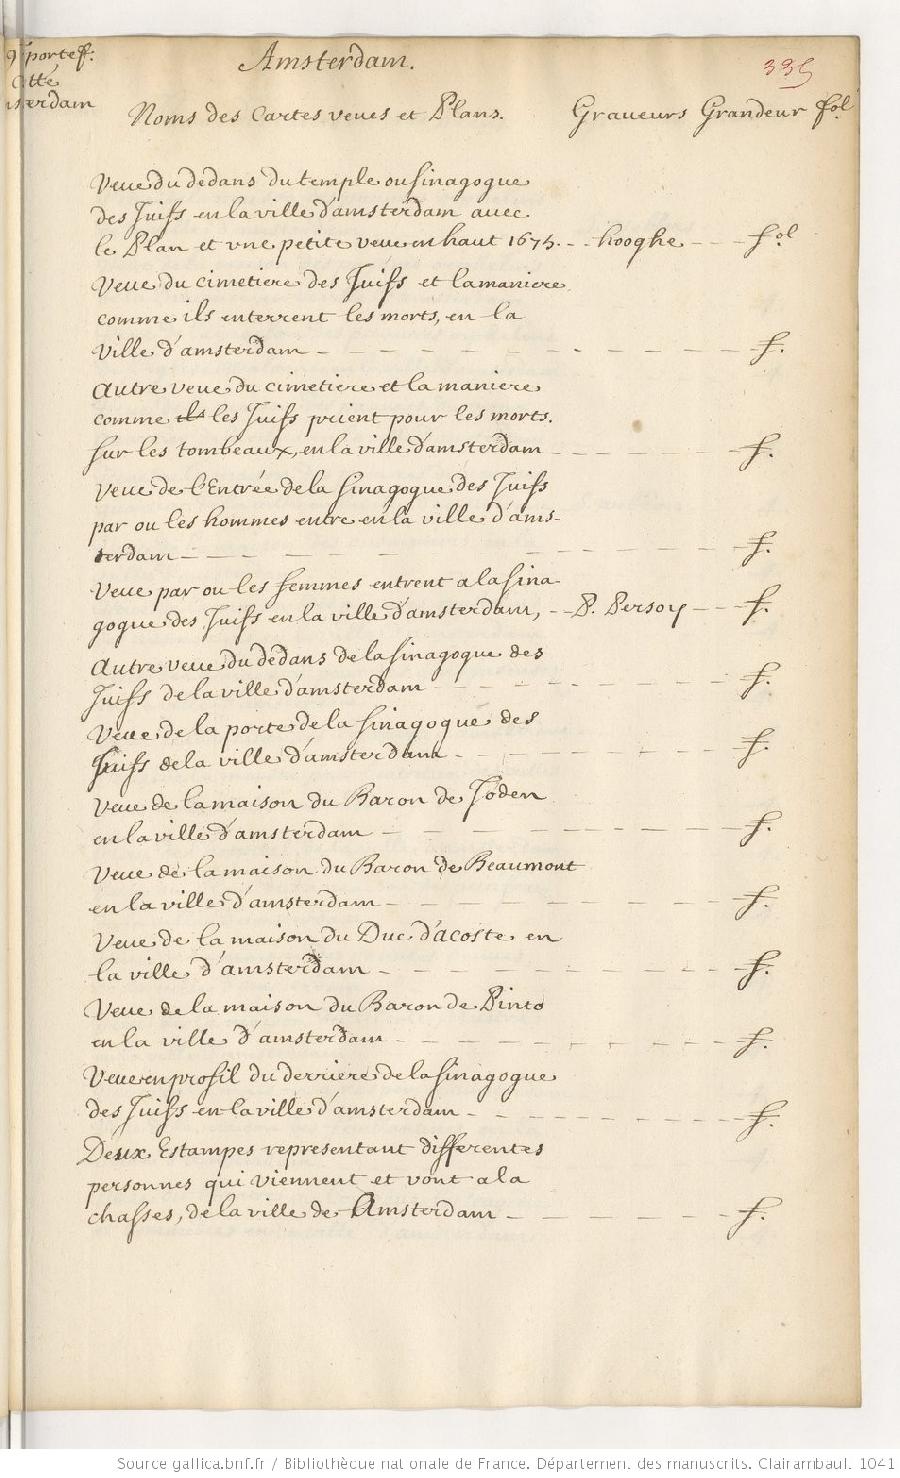 portef.
Cotté
Amsterdam.
335
Noms des Cartes veues et Plans. Graueurs Grandeur fol
Veue du dedans du temple ou sinagogue
des Juifs en la ville d'amsterdam auec.
le Plan et vne petite veue en haut 1675. - - hooghe - - - fol
Veue du cimetiere des Juifs et la maniere
comme ils enterrent les morts, en la
ville d'amsterdam - - - - - - - - f.
autre veue du cimetiere et la maniere
comme ils les Juifs prient pour les morts.
sur les tombeaux, en la ville d'amsterdam - - - - - - f.
Veue de l'Entrée de la sinagogue des Juifs
par ou les hommes entre en la ville d'ams-
terdam - - - - - - - - f.
Veue par ou les femmes entrent a la sina
gogue des Juifs en la ville d'amsterdam, - - P. Persoy - - - f.
autre veue du dedans de la sinagogue des
Juifs de la ville d'amsterdam - - - - - - - f.
Veue de la porte de la sinagogue des
Juifs de la ville d'amsterdam - - - - - - - f.
Veue de la maison du Baron de Joden
en la ville d'amsterdam - - - - - - - - f.
Veue de la maison du Baron de Beaumont
en la ville d'amsterdam - - - - - - - - f.
Veue de la maison du Duc d'acoste en
la ville d'amsterdam - - - - - - - - f.
Veue de la maison du Baron de Pinto
en la ville d'amsterdam - - - - - - - - f.
Veue en profil du derriere de la sinagogue
des Juifs en la ville d'amsterdam - - - - - - - f.
Deux Estampes representant differentes
personnes qui viennent et vont a la
chasses, de la ville de Amsterdam - - - - - - f.
Source gallica.bnf.fr / Bibliothèque nationale de France. Département des manuscrits. Clairambaul. 1041